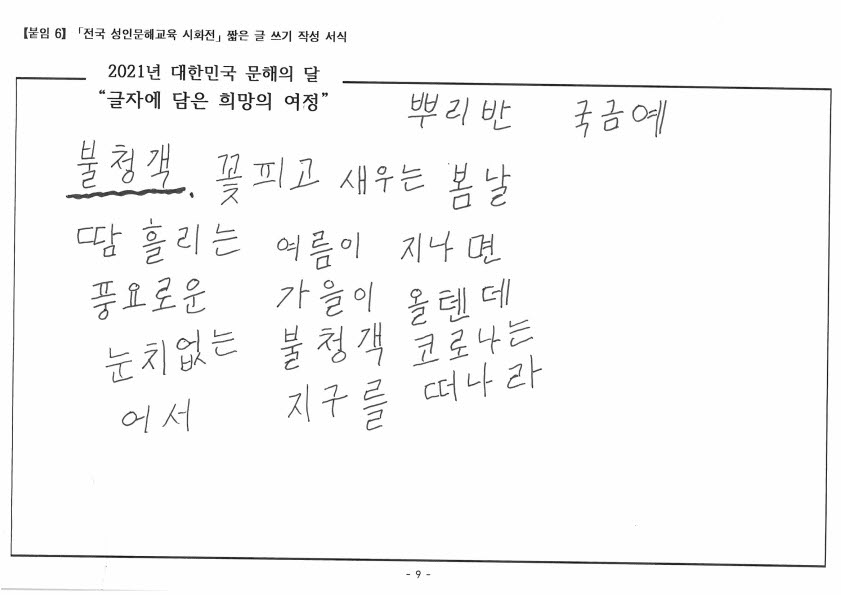 【붙임 6】「전국 성인문해교육 시화전」짧은 글 쓰기 작성 서식
2021년 대한민국 문해의 달
“글자에 담은 희망의 여정”
뿌리반 국금예
불청객. 꽃피고 새우는 봄날
땀 흘리는 여름이 지나면
풍요로운 가을이 올텐데
눈치없는 불청객 코로나는
어서 지구를 떠나라
- 9 -